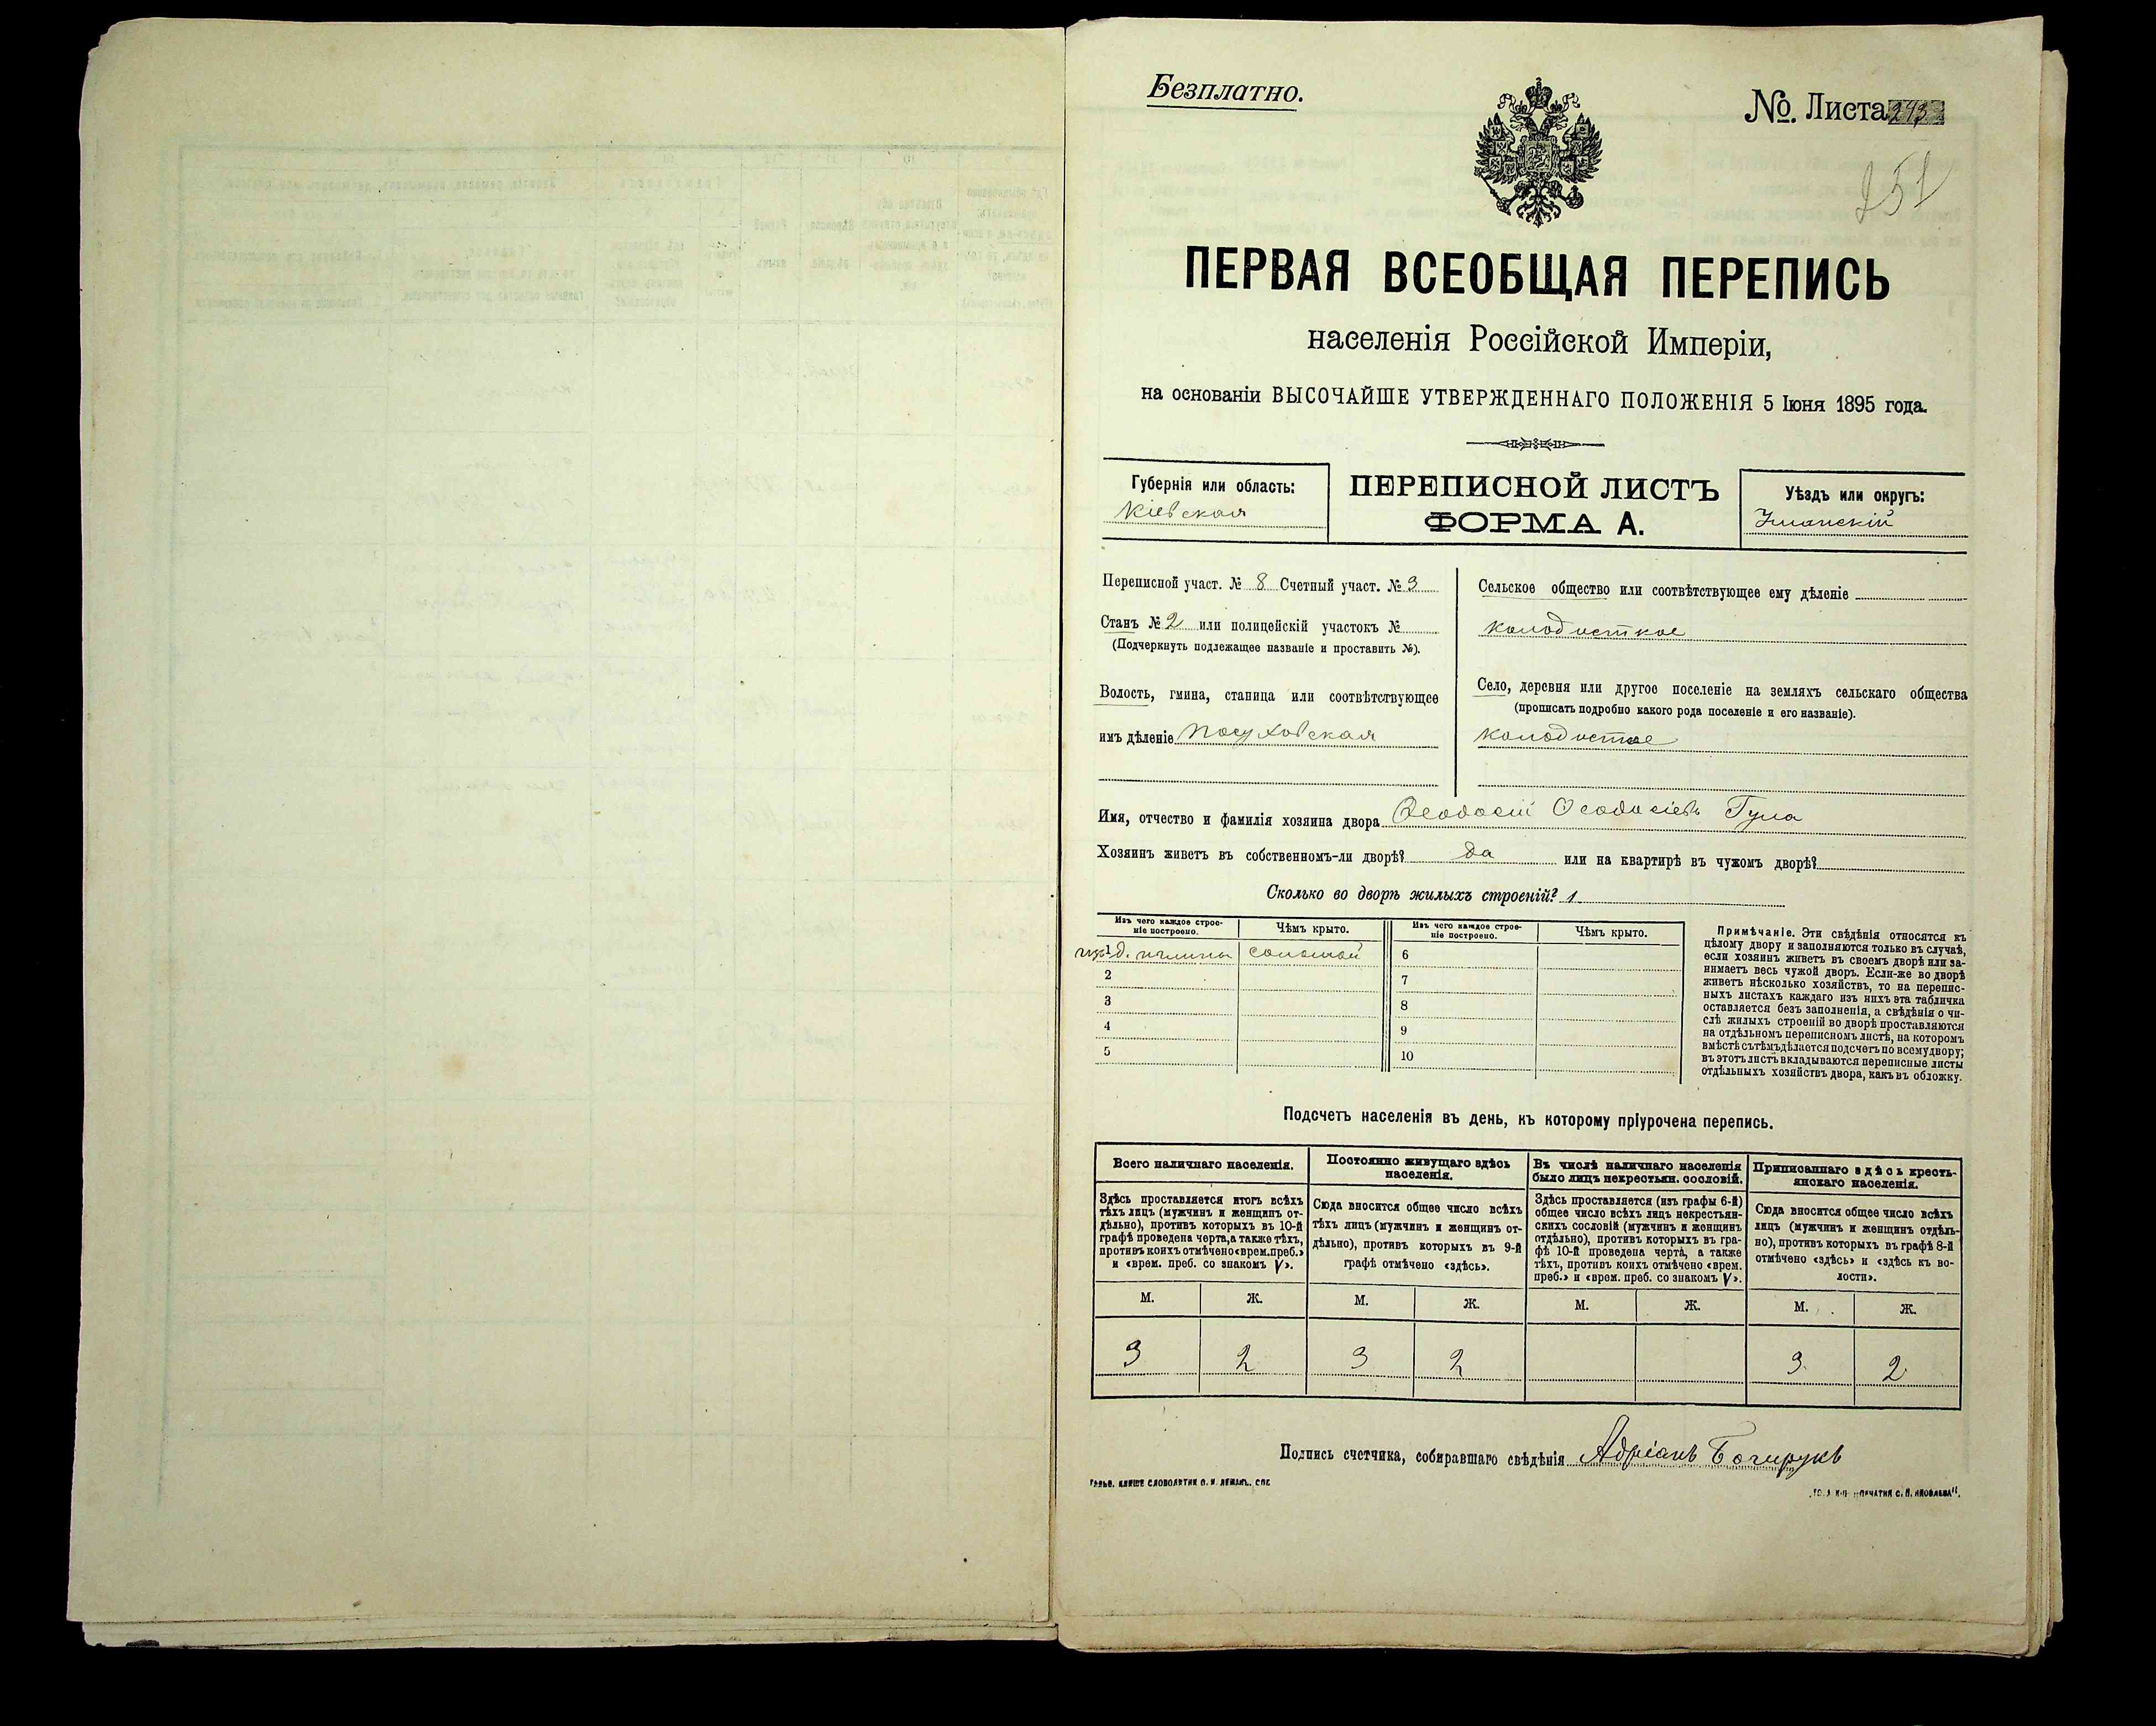 Безплатно.
№. Листа 243
251
ПЕРВАЯ ВСЕОБЩАЯ ПЕРЕПИСЬ
населенія Россійской Имперіи,
на основаніи ВЫСОЧАЙШЕ УТВЕРЖДЕННАГО ПОЛОЖЕНІЯ 5 Іюня 1895 года.
Губернія или область:
Кіевская
ПЕРЕПИСНОЙ ЛИСТЪ
ФОРМА А.
Уѣздъ или округъ:
Уманскій
Переписной участ. № 8 Счетный участ. № 3
Станъ № 2 или полицейскій участокъ №
(Подчеркнуть подлежащее названіе и проставить №).
Волость, гмина, станица или соотвѣтствующее
имъ дѣленіе Посуховская
Сельское общество или соотвѣтствующее ему дѣленіе
колодисткое
Село, деревня или другое поселеніе на земляхъ сельскаго общества
(прописать подробно какого рода поселеніе и его названіе).
колодистое
Имя, отчество и фамилія хозяина двора Ѳеодосій Ѳеодосіевъ Гула
Хозяинъ живетъ въ собственномъ-ли дворѣ? да или на квартирѣ въ чужомъ дворѣ?
Сколько во дворѣ жилыхъ строеній? 1
Изъ чего каждое строе-
ніе построено.
Чѣмъ крыто.
Изъ чего каждое строе-
ніе построено.
Чѣмъ крыто.
1 глины соломой
2
3
4
5
6
7
8
9
10
Примѣчаніе. Эти свѣдѣнія относятся къ
цѣлому двору и заполняются только въ случаѣ,
если хозяинъ живетъ въ своемъ дворѣ или за-
нимаетъ весь чужой дворъ. Если-же во дворѣ
живетъ нѣсколько хозяйствъ, то на перепис-
ныхъ листахъ каждаго изъ нихъ эта табличка
оставляется безъ заполненія, а свѣдѣнія о чи-
слѣ жилыхъ строеній во дворѣ проставляются
на отдѣльномъ переписномъ листѣ, на которомъ
вмѣстѣ съ тѣмъ дѣлается подсчетъ по всему двору;
въ этотъ листъ вкладываются переписные листы
отдѣльныхъ хозяйствъ двора, какъ въ обложку.
Подсчетъ населенія въ день, къ которому пріурочена перепись.
Всего наличнаго населенія.
Здѣсь проставляется итогъ всѣхъ
тѣхъ лицъ (мужчинъ и женщинъ от-
дѣльно), противъ которыхъ въ 10-й
графѣ проведена черта, а также тѣхъ,
противъ коихъ отмѣчено «врем. преб.»
и «врем. преб. со знакомъ V».
Постоянно живущаго здѣсь
населенія.
Сюда вносится общее число всѣхъ
тѣхъ лицъ (мужчинъ и женщинъ от-
дѣльно), противъ которыхъ въ 9-й
графѣ отмѣчено «здѣсь».
Въ числѣ наличнаго населенія
было лицъ некрестьян. сословій.
Здѣсь проставляется (изъ графы 6-й)
общее число всѣхъ лицъ некрестьян-
скихъ сословій (мужчинъ и женщинъ
отдѣльно), противъ которыхъ въ гра-
фѣ 10-й проведена черта, а также
тѣхъ, противъ коихъ отмѣчено «врем.
преб.» и «врем. преб. со знакомъ V».
Приписаннаго здѣсь кресть-
янскаго населенія.
Сюда вносится общее число всѣхъ
лицъ (мужчинъ и женщинъ отдѣль-
но), противъ которыхъ въ графѣ 8-й
отмѣчено «здѣсь» и «здѣсь къ во-
лости».
М. Ж. М. Ж. М. Ж. М. Ж.
3 2 3 2 3 2
Подпись счетчика, собиравшаго свѣдѣнія Адріанъ Бочирукъ